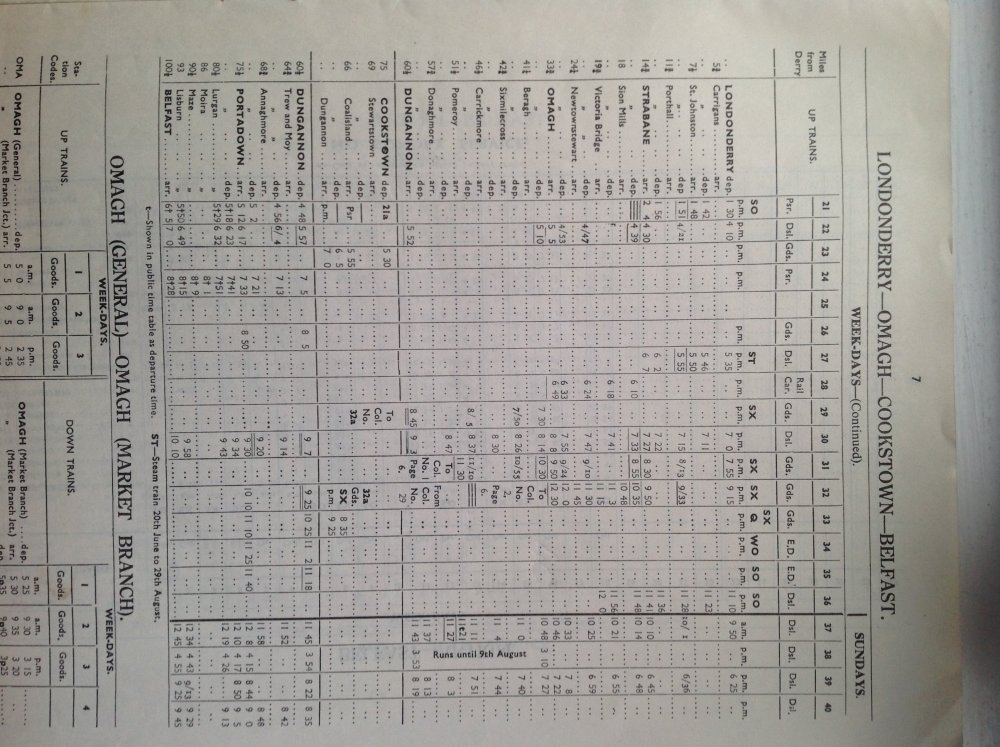 7
LONDONDERRY—OMAGH—COOKSTOWN—BELFAST.
WEEK-DAYS—(Continued). SUNDAYS.
Miles from Derry UP TRAINS. 21 22 23 24 25 26 27 28 29 30 31 32 33 34 35 36 37 38 39 40
Psr. Dsl. Gds. Psr. Gds. Dsl. Rail Car. Gds. Dsl. Gds. Gds. Gds. E.D. E.D. Dsl. Dsl. Dsl. Dsl. Dsl.
SO ST SX SX SX SX Q WO SO SO
LONDONDERRY dep. 1 30 4 10 5 35 7 0 7 55 9 15 11 10 9 50 6 25
5¾ Carrigans arr.
dep. 1 42 5 46 7 11 11 23
7½ St. Johnston arr. 1 48 5 50
dep. 1 51 4/21 5 55 7 15 8/13 9/33 11 28 10/1 6/36
11½ Porthall arr.
dep. 1 56 6 2 7 22 11 36
14¾ STRABANE arr. 2 4 4 30 6 7 7 27 8 30 9 50 11 41 10 10 6 45
dep. 4 39 6 10 7 33 8 55 10 35 11 48 10 14 6 48
18 Sion Mills 10 48
19¾ Victoria Bridge 6 18 7 41 11 3 11 56 10 21 6 55
24¼ Newtownstewart arr.
dep. 4/47 6 24 7 47 9/10 12 0 10 25 6 59
4/53 6 33 7 55 9/24 12 0 10 33 7 8
33¾ OMAGH arr. 5 5 6 49 8 8 9 50 12 30 10 46 7 22
dep. 5 10 7 30 8 14 10 30 To 10 48 3 10 7 27
41¼ Beragh arr. Col.
dep. 7/50 8 26 10/55 No. 11 0 7 40
42¾ Sixmilecross 8 30 2, 11 4 7 44
46½ Carrickmore 8/5 8 37 11/10 Page 6. 11 11 7 51
51½ Pomeroy arr. To 11 30 1t21
dep. 8 47 Col. From 11 27 8 3
57¾ Donaghmore No. 1 Col. 11 37 8 13
60½ DUNGANNON arr. 5 52 8 45 9 3 Page 6. No. 29 11 43 3 53 8 19
75 COOKSTOWN dep. 21a 5 30 To Col. No. 32a
69 Stewartstown 32a
66 Coalisland arr. Psr 5 55 Gds. 8 35
dep. 6 5 SX
Dungannon arr. p.m. 7 0 p.m. 9 25
60½ DUNGANNON dep. 4 48 5 57 7 5 8 5 9 7 9 25 10 25 11 2 11 18 11 45 3 54 8 22 8 35
64¾ Trew and Moy arr.
dep. 4 56 6/4 7 13 9 14 11 52 8 42
68¾ Annaghmore 5 2 7 21 9 20 11 58 8 48
75¾ PORTADOWN arr. 5 12 6 17 7 33 8 50 9 30 10 10 11 10 11 25 11 40 12 8 4 15 8 44 9 0
dep. 5†18 6 23 7†41 9 34 12 10 4 17 8 50 9 5
80½ Lurgan 5†29 6 32 7†51 9 43 12 19 4 26 9 13
86 Moira 8† 1
90½ Maze 8† 9
93 Lisburn 5†50 6 49 8†15 9 58 12 34 4 43 9/13 9 29
100½ BELFAST arr. 6† 5 7 0 8†28 10 10 12 45 4 55 9 25 9 45
Runs until 9th August
t—Shown in public time table as departure time. ST—Steam train 20th June to 29th August.
OMAGH (GENERAL)—OMAGH (MARKET BRANCH).
WEEK-DAYS. WEEK-DAYS.
Station Codes. UP TRAINS. 1 2 3 DOWN TRAINS. 1 2 3 4
Goods. Goods. Goods. Goods. Goods. Goods.
a.m. a.m. p.m. a.m. a.m. p.m.
OMA OMAGH (General) dep. 5 0 9 0 2 35 OMAGH (Market Branch) dep. 5 25 9 30 3 15
(Market Branch Jct.) arr. 5 5 9 5 2 45 (Market Branch Jct.) arr. 5 30 9 35 3 20
5p35 9p40 3p25